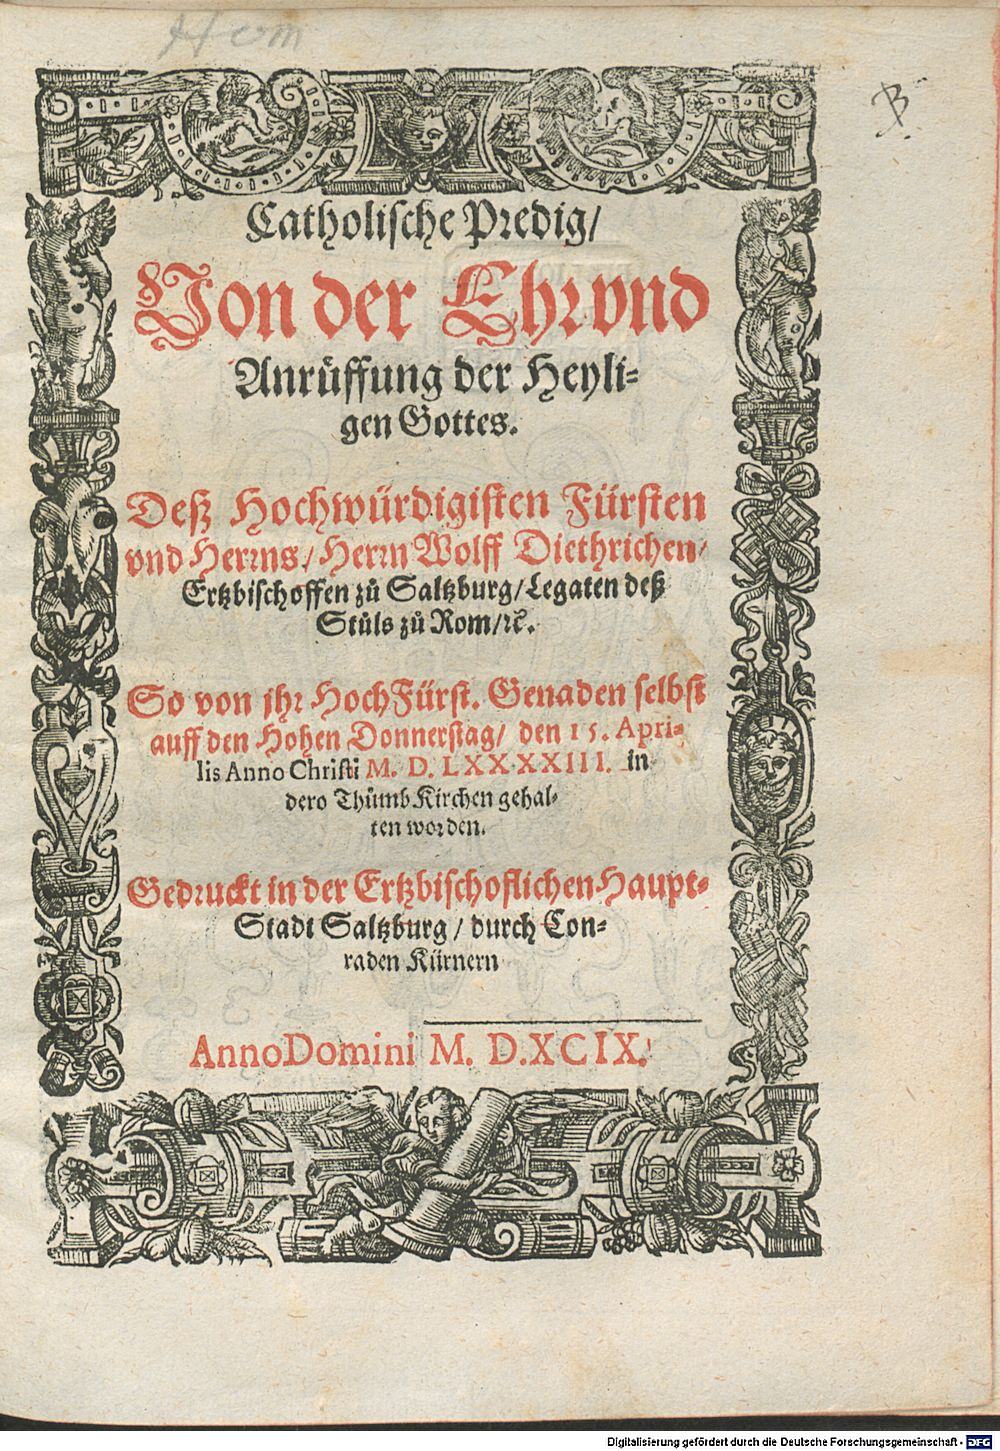 Hom
B
Catholische Predig/
Von der Ehr vnd
Anrüffung der Heyli-
gen Gottes.
Deß Hochwürdigisten Fürsten
vnd Herrns/ Herrn Wolff Diethrichen/
Ertzbischoffen zů Saltzburg/ Legaten deß
Stůls zů Rom/ ꝛc.
So von jhr HochFürst. Genaden selbst
auff den Hohen Donnerstag/ den 15. Apri-
lis Anno Christi M. D. LXXXXIII. in
dero Thůmb Kirchen gehal-
ten worden.
Gedruckt in der Ertzbischoflichen Haupt-
Stadt Saltzburg/ durch Con-
raden Kürnern
Anno Domini M. D. XCIX.
Digitalisierung gefördert durch die Deutsche Forschungsgemeinschaft - DFG